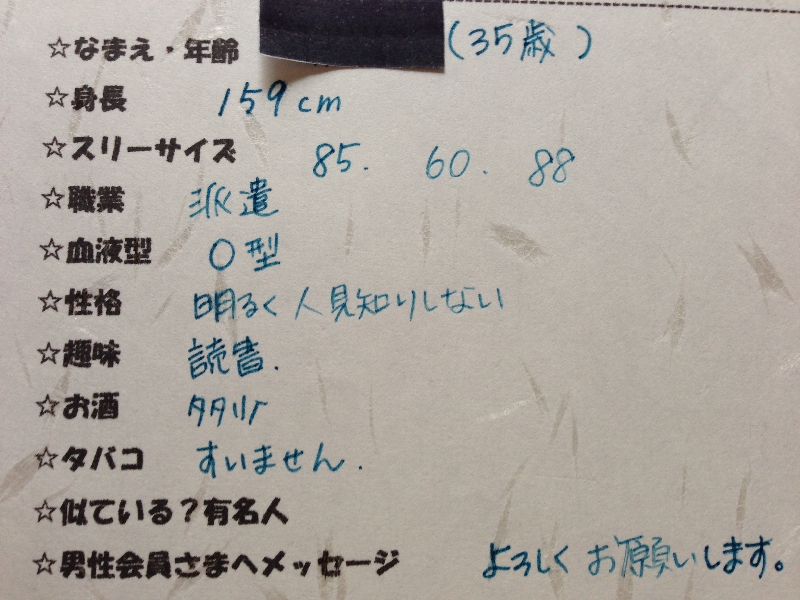 ☆なまえ・年齢 (35歳)
☆身長 159cm
☆スリーサイズ 85. 60. 88
☆職業 派遣
☆血液型 O型
☆性格 明るく人見知りしない
☆趣味 読書.
☆お酒 少々
☆タバコ すいません.
☆似ている?有名人
☆男性会員さまへメッセージ よろしくお願いします。